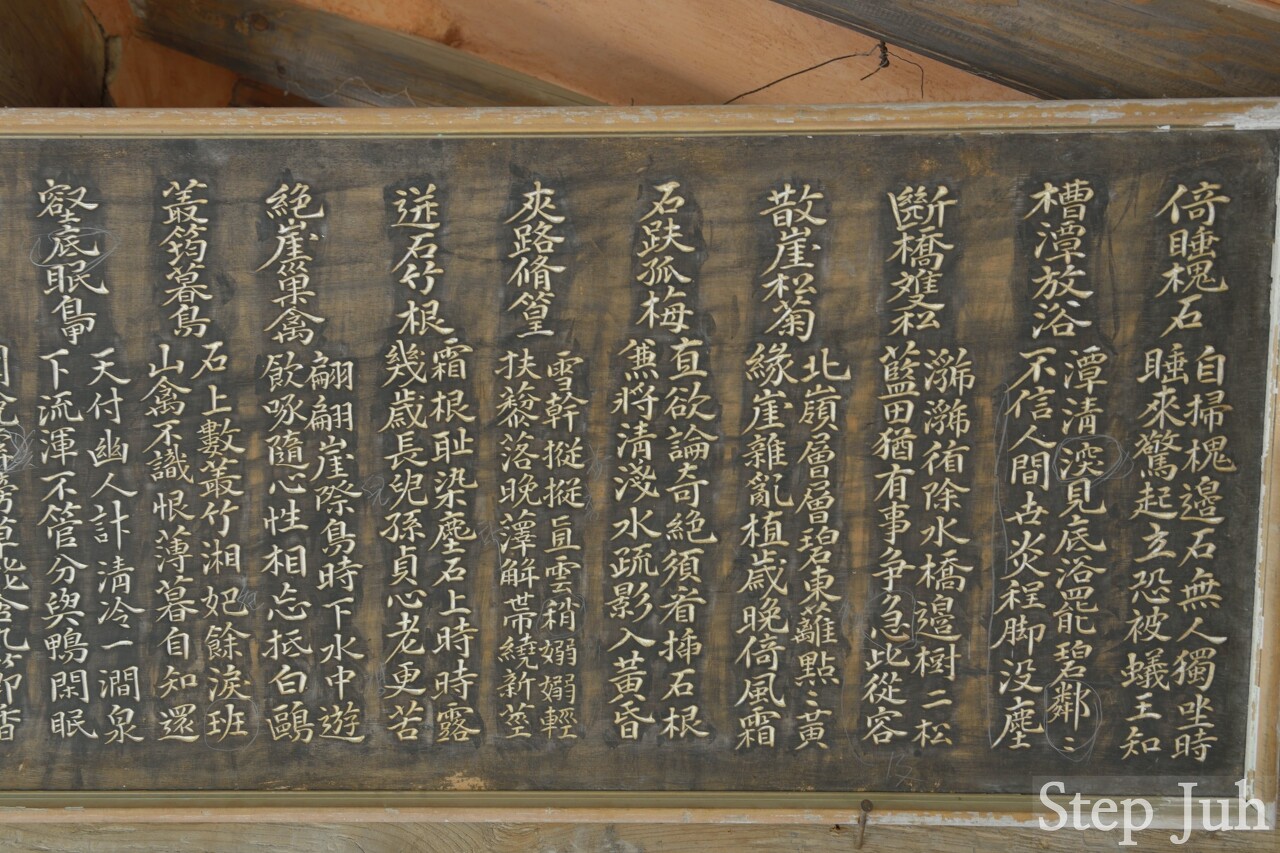 倚睡槐石
自掃槐邊石無人獨坐時
睡來驚起立恐被蟻王知
槽潭放浴
潭清深見底浴罷碧鄰〻
不信人間世炎程脚没塵
斷橋雙松
㶁㶁循除水橋邊樹二松
藍田猶有事争急此從容
散崖松菊
北嶺層層碧東籬點〻黃
緣崖雜亂植歲晚倚風霜
石趺孤梅
直欲論奇絶須看揷石根
兼將清淺水疏影入黃昏
夾路脩篁
雪幹摐摐直雲稍嫋嫋輕
扶藜落晚籜解帶繞新莖
迸石竹根
霜根耻染塵石上時時露
幾歲長兒孫貞心老更苦
絶崖巢禽
翩翩崖際鳥時下水中遊
飲啄隨心性相忘抵白鷗
叢筠暮鳥
石上數叢竹湘妃餘淚班
山禽不識恨薄暮自知還
壑底眠鴨
天付幽人計清冷一澗泉
下流渾不管分與鴨閑眠
Step Juh